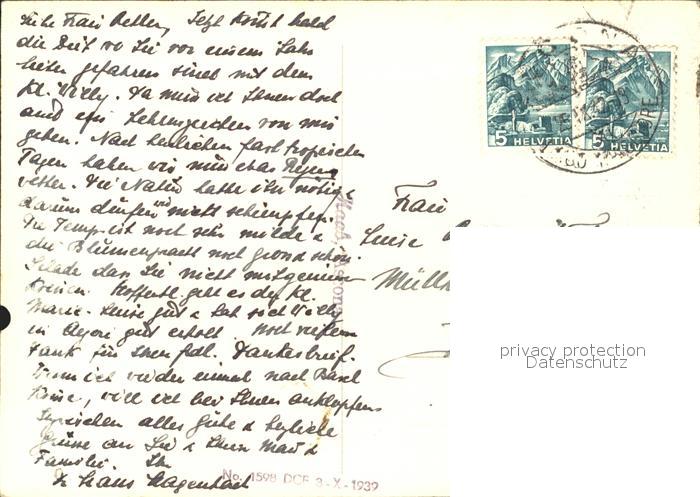 Liebe Frau Oetter, Jetzt kommt bald
die Zeit wo Sie vor einem Jahr
hierher gefahren sind mit dem
kl. Willy. Da muss ich Ihnen doch
auch ein Lebenszeichen von mir
geben. Nach herrlichen fast tropischen
Tagen haben wir nun etwas Regen
wetter. Die Natur hatte ihn nötig &
darum dürfen wir nicht schimpfen.
Die Temp. ist noch sehr milde &
die Blumenpracht noch gross & schön.
Schade dass Sie nicht mitgeniessen
können. Hoffentl. geht es der Kl.
Marie-Luise gut & hat sich Willy
in gut erholt. Noch vielen
Dank für Ihren frdl. Dankesbrief.
Wenn ich wieder einmal nach Basel
komme, will ich bei Ihnen anklopfen.
Inzwischen alles Gute & herzliche
Grüsse an Sie & Ihren Mann &
Familie. Ihr
Hans Hagenbach
No. 1598 DCF 3-X-1939
5 HELVETIA
5 HELVETIA
Frau
Luise
Müll
privacy protection
Datenschutz